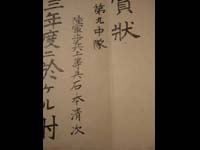 賞狀
第九中隊
陸軍歩兵上等兵石本清次
三年度ニ於ケル村